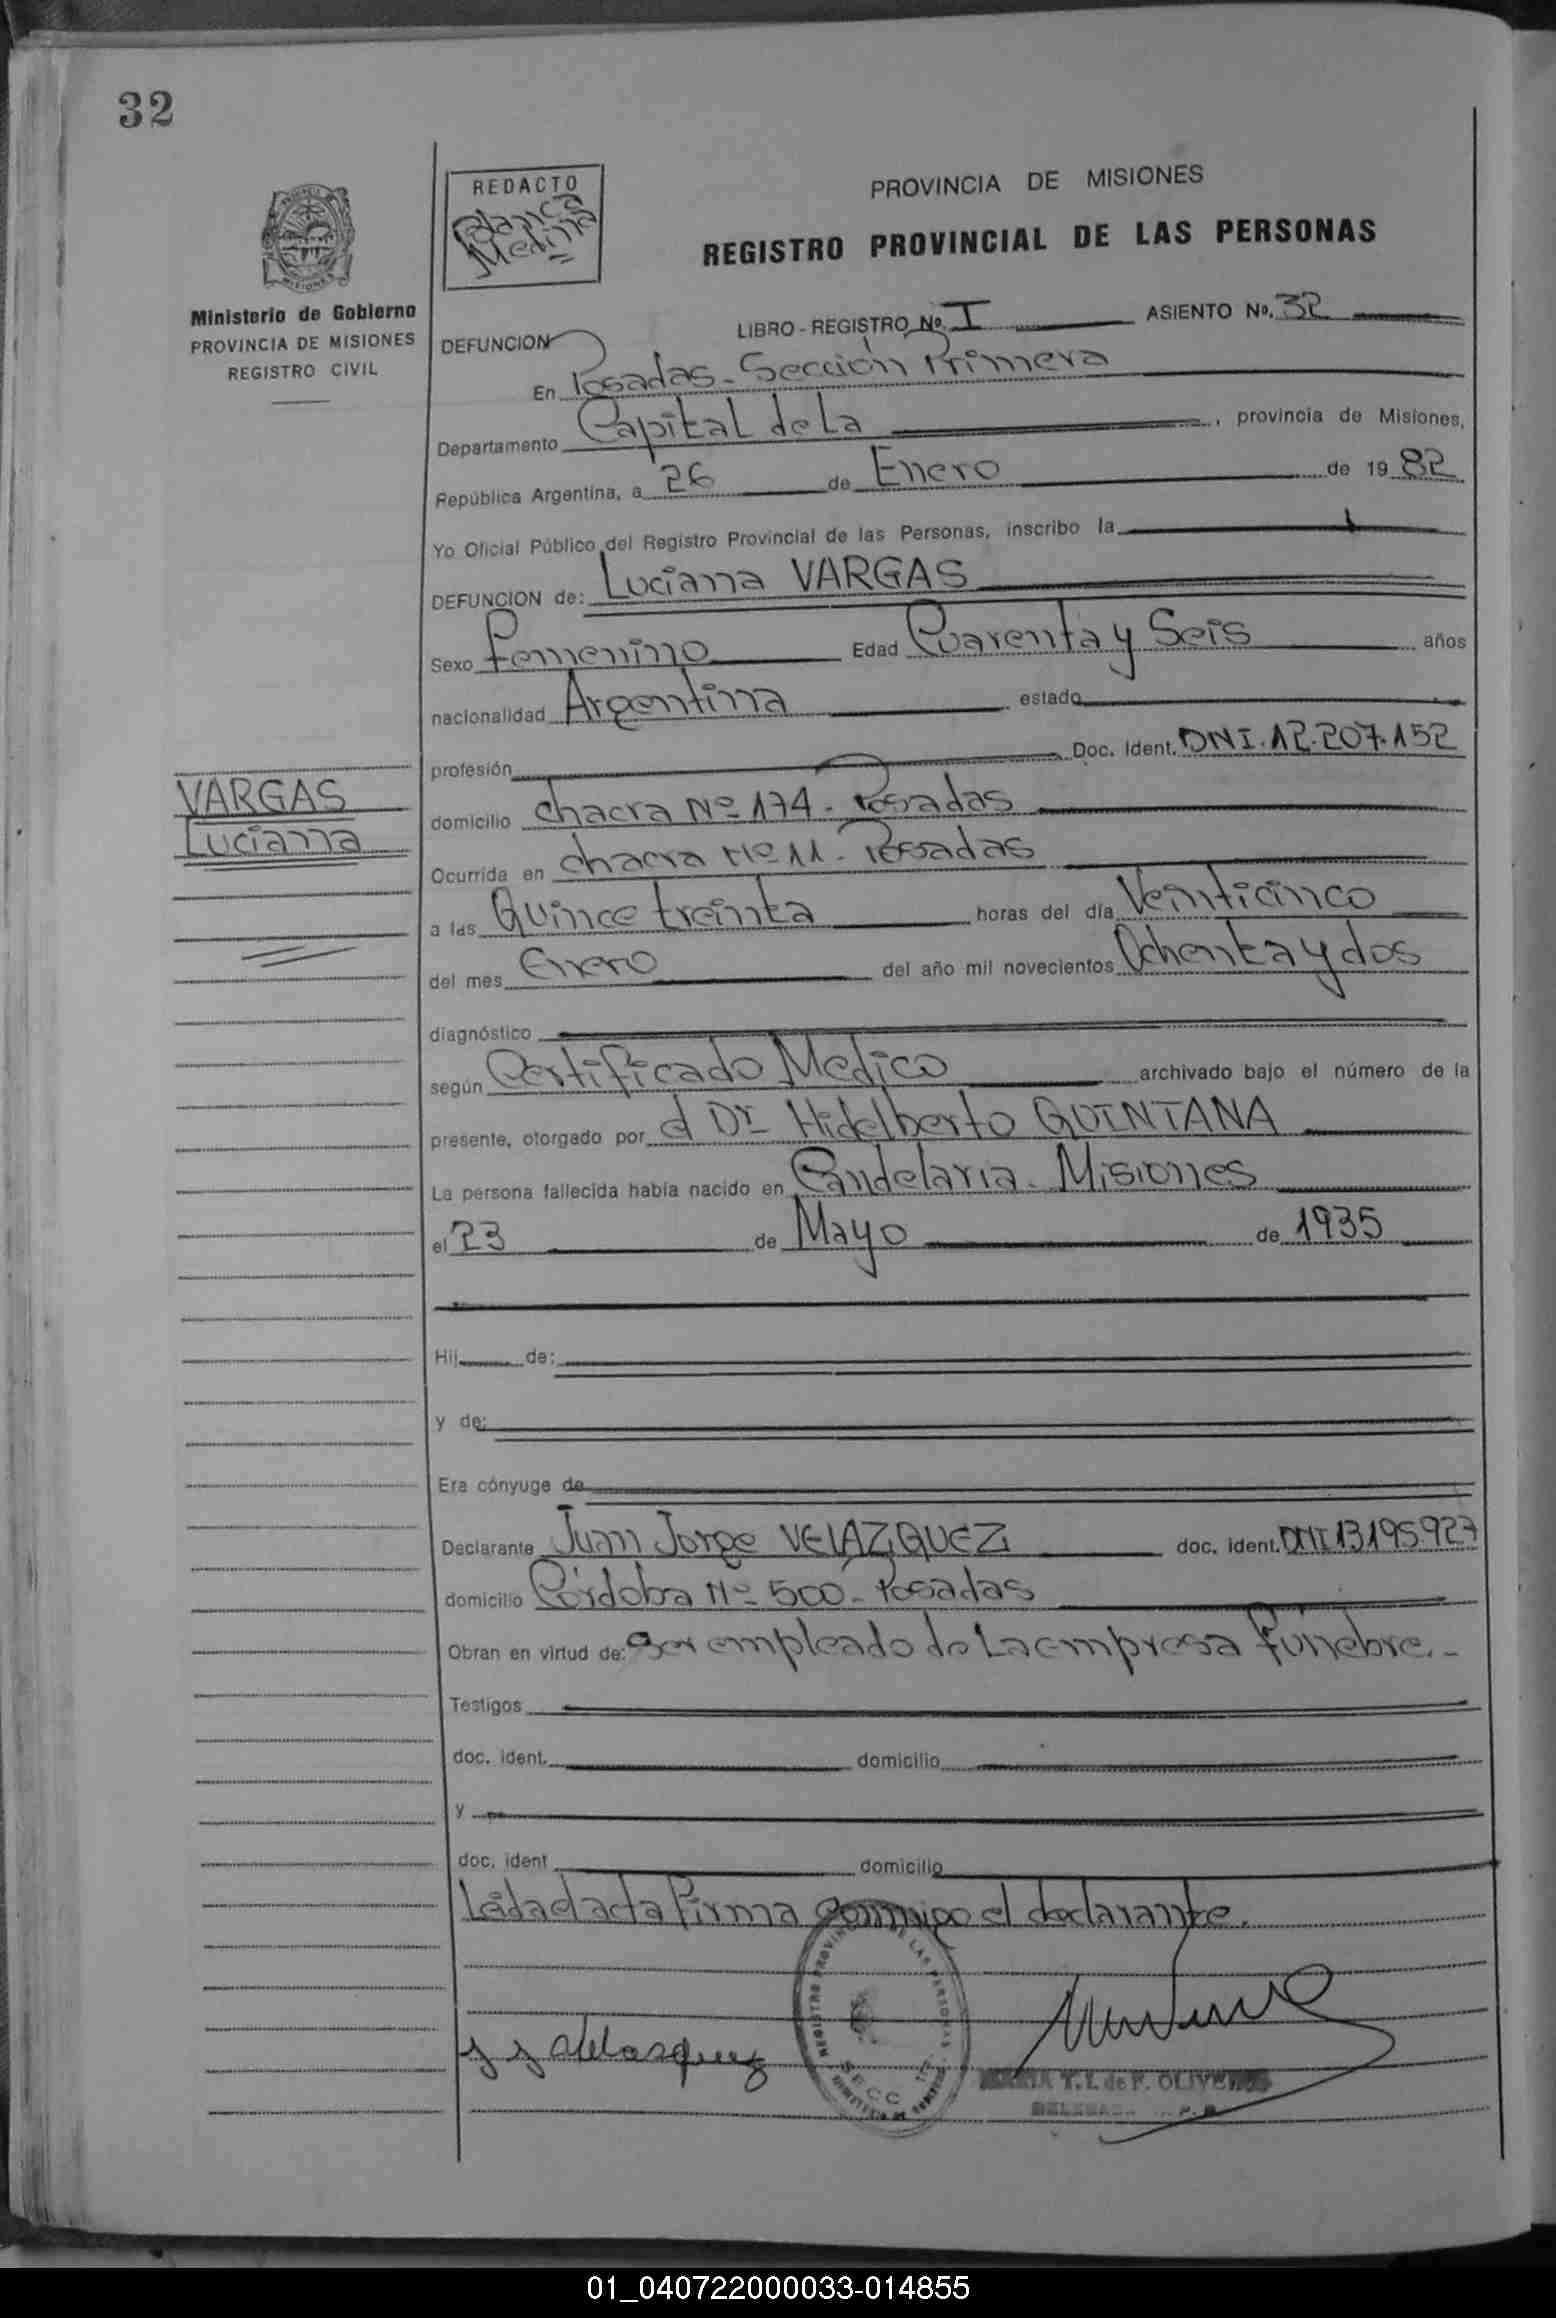 32
REDACTO
Blanca
Medina
PROVINCIA DE MISIONES
REGISTRO PROVINCIAL DE LAS PERSONAS
Ministerio de Gobierno
PROVINCIA DE MISIONES
REGISTRO CIVIL
LIBRO - REGISTRO No. I ASIENTO No. 32
DEFUNCION
En Posadas - Sección Primera
Departamento Capital de La , provincia de Misiones,
República Argentina, a 26 de Enero de 1982
Yo Oficial Público del Registro Provincial de las Personas, inscribo la
DEFUNCION de: Luciana VARGAS
Sexo Femenino Edad Cuarenta y Seis años
nacionalidad Argentina estado
profesión Doc. Ident. DNI. 12.207.152
VARGAS
Luciana
domicilio chacra Nº 174 - Posadas
Ocurrida en chacra Nº 11 - Posadas
a las Quince treinta horas del día Veinticinco
del mes Enero del año mil novecientos Ochenta y dos
diagnóstico
según Certificado Medico archivado bajo el número de la
presente, otorgado por el Dr Hidelberto QUINTANA
La persona fallecida había nacido en Candelaria - Misiones
el 23 de Mayo de 1935
Hij de:
y de:
Era cónyuge de
Declarante Juan Jorge VELAZQUEZ doc. ident. DNI 13.195.927
domicilio Córdoba Nº 500 - Posadas
Obran en virtud de: ser empleado de La empresa fúnebre.-
Testigos
doc. ident. domicilio
y
doc. ident domicilio
Leída el acta firma conmigo el declarante.
REGISTRO PROVINCIAL DE LAS PERSONAS
SECC. 1ª
J J Velasquez
MARIA T. I. de F. OLIVEIRA
DELEGADA R. P. P.
01_040722000033-014855